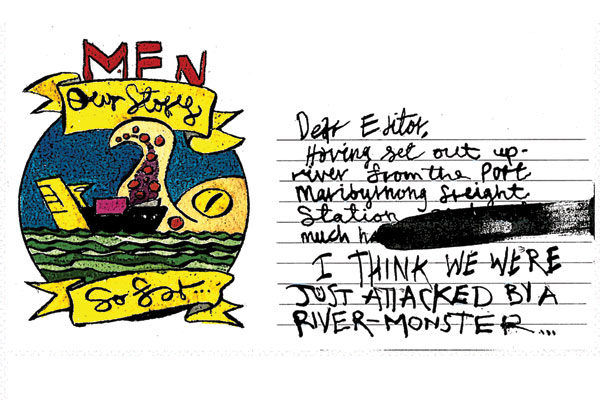 MEN
Our Story
So Far...
Dear Editor,
Having set out up-
river from the Port
Maribyrnong freight
Station
much
I THINK WE WERE
JUST ATTACKED BY A
RIVER-MONSTER...